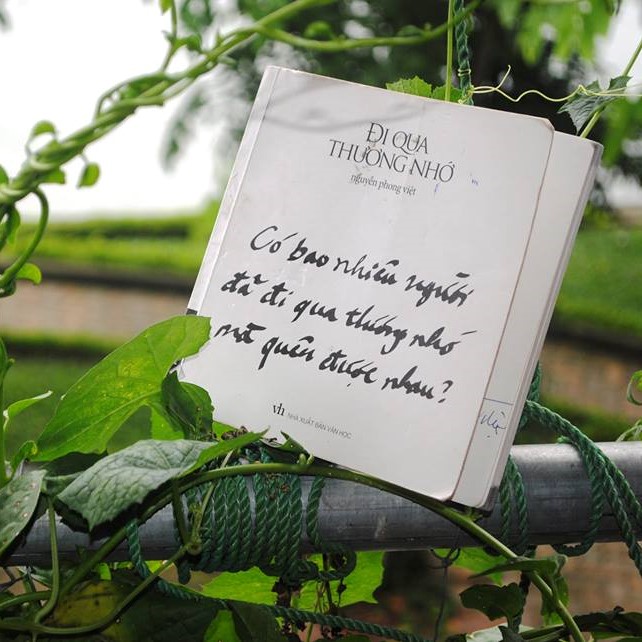 ĐI QUA
THƯƠNG NHỚ
nguyễn phong việt
Có bao nhiêu người
đã đi qua thương nhớ
mà quên được nhau?
vh NHÀ XUẤT BẢN VĂN HỌC